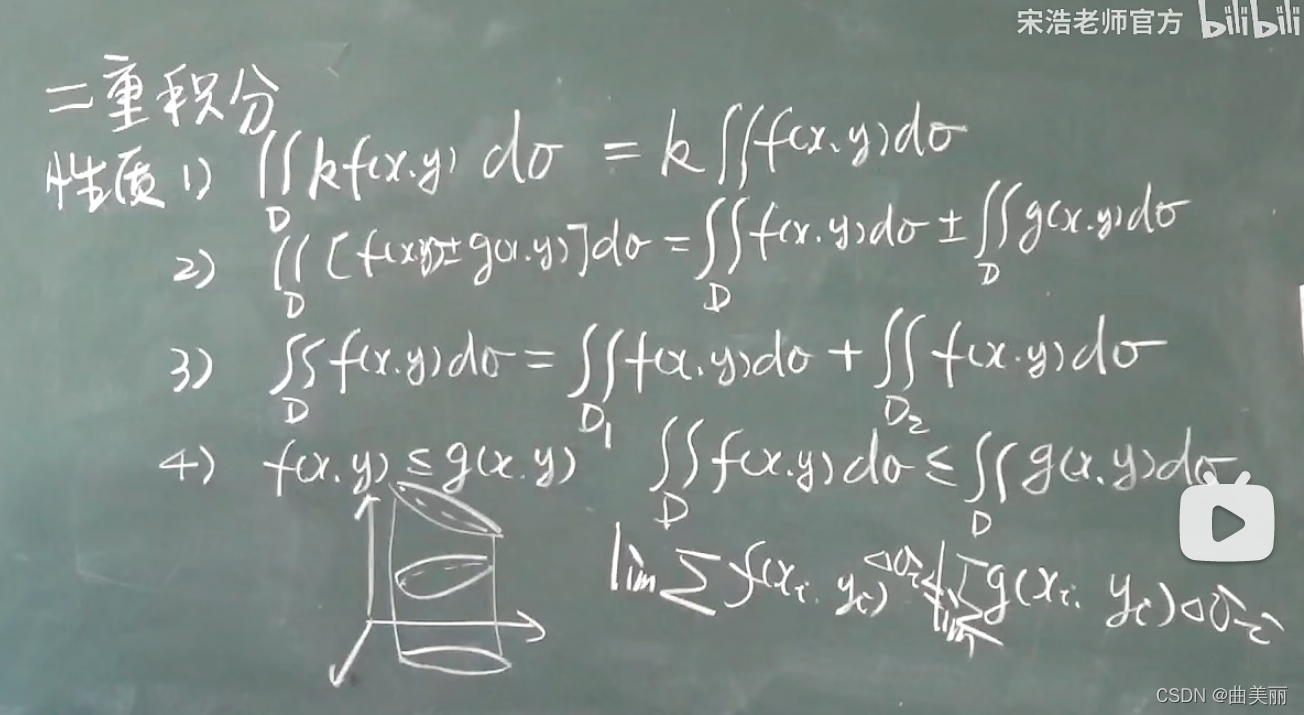 宋浩老师官方 bilibili
二重积分
性质 1) ∬_D kf(x.y) dσ = k∬f(x.y)dσ
2) ∬_D [f(x.y)±g(x.y)]dσ = ∬_D f(x.y)dσ ± ∬_D g(x.y)dσ
3) ∬_D f(x.y)dσ = ∬_D₁ f(x.y)dσ + ∬_D₂ f(x.y)dσ
4) f(x.y) ≤ g(x.y) ∬_D f(x.y)dσ ≤ ∬_D g(x.y)dσ
lim Σ f(xᵢ. yᵢ)Δσᵢ ≤ lim Σ g(xᵢ. yᵢ)Δσᵢ
CSDN @曲美丽